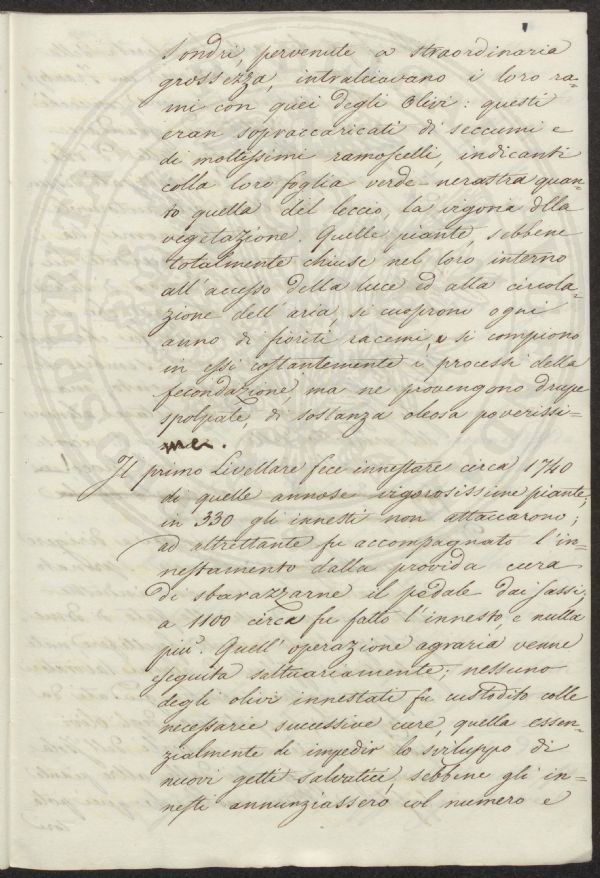 Sondri, pervenute a straordinaria
grossezza, intralciavano i loro ra-
mi con quei degli Olivi: questi
eran sopraccaricati di seccumi e
di moltissimi ramoscelli, indicanti
colla loro foglia verde-nerastra quan-
to quella del leccio, la vigoria della
vegetazione. Quelle piante, sebbene
totalmente chiuse nel loro interno
all'accesso della luce ed alla circola-
zione dell'aria, si cuoprono ogni
anno di fioriti racemi, e si compiono
in essi costantemente i processi della
fecondazione, ma ne provengono drupe
spolpate, di sostanza oleosa poverissi-
me.
Il primo Livellare fece innestare circa 1740
di quelle annose vigorosissime piante;
in 330 gli innesti non attaccarono;
ad altrettante fu accompagnato l'in-
nestamento dalla provida cura
di sbarazzarne il pedale dai sassi;
a 1100 circa fu fatto l'innesto, e nulla
più. Quell'operazione agraria venne
eseguita saltuariamente; nessuno
degli olivi innestati fu custodito colle
necessarie successive cure, quella essen-
zialmente di impedir lo sviluppo di
nuovi getti salvatici, sebbene gli in-
nesti annunziassero col numero e